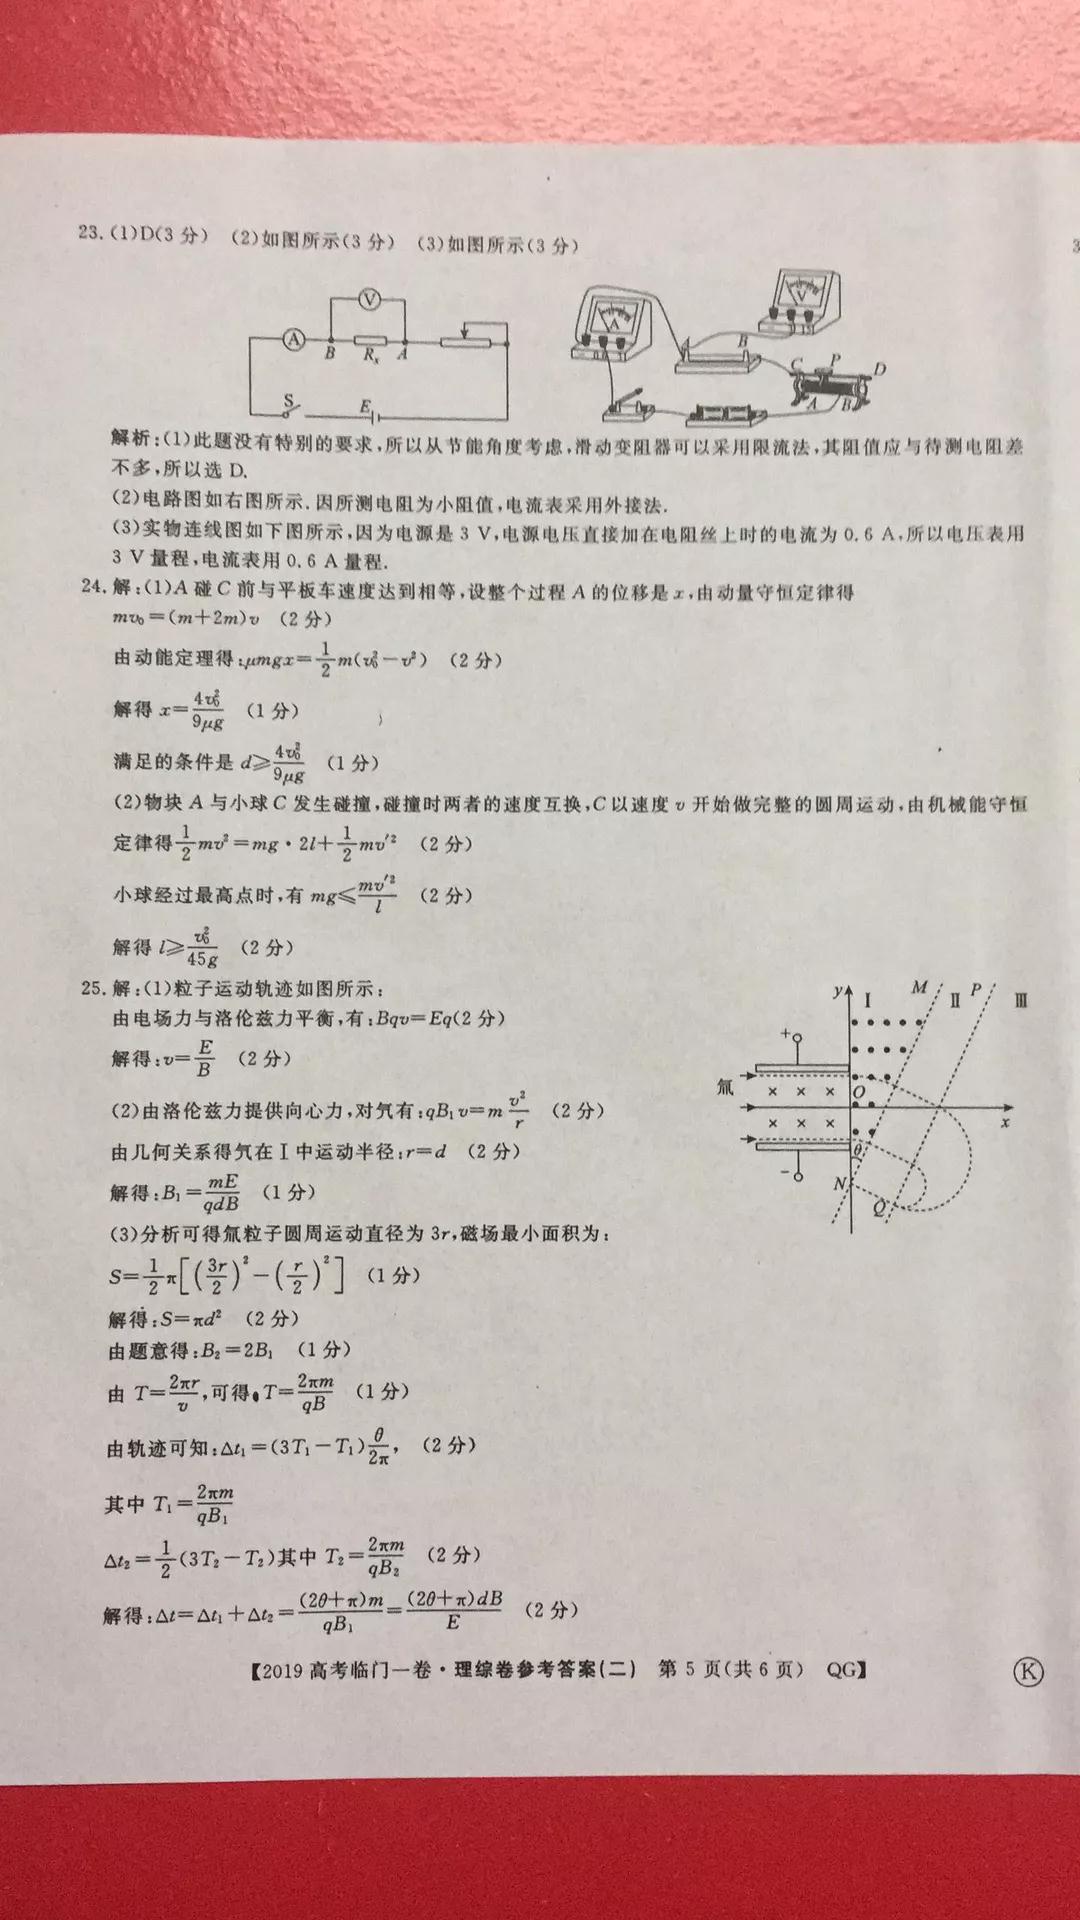 23.(1)D(3分) (2)如图所示(3分) (3)如图所示(3分)
V
A
B Rₓ A
S
E
A
V
B
C P D
A B
解析:(1)此题没有特别的要求,所以从节能角度考虑,滑动变阻器可以采用限流法,其阻值应与待测电阻差
不多,所以选 D.
(2)电路图如右图所示.因所测电阻为小阻值,电流表采用外接法.
(3)实物连线图如下图所示,因为电源是 3 V,电源电压直接加在电阻丝上时的电流为 0.6 A,所以电压表用
3 V 量程,电流表用 0.6 A 量程.
24.解:(1)A 碰 C 前与平板车速度达到相等,设整个过程 A 的位移是 x,由动量守恒定律得
mv₀=(m+2m)v (2分)
由动能定理得:μmgx=1/2 m(v₀²-v²) (2分)
解得 x=4v₀²/9μg (1分)
满足的条件是 d≥4v₀²/9μg (1分)
(2)物块 A 与小球 C 发生碰撞,碰撞时两者的速度互换,C 以速度 v 开始做完整的圆周运动,由机械能守恒
定律得 1/2 mv²=mg·2l+1/2 mv′² (2分)
小球经过最高点时,有 mg≤mv′²/l (2分)
解得 l≥v₀²/45g (2分)
25.解:(1)粒子运动轨迹如图所示:
由电场力与洛伦兹力平衡,有:Bqv=Eq(2分)
解得:v=E/B (2分)
(2)由洛伦兹力提供向心力,对氕有:qB₁v=m v²/r (2分)
由几何关系得氕在Ⅰ中运动半径:r=d (2分)
解得:B₁=mE/qdB (1分)
(3)分析可得氚粒子圆周运动直径为 3r,磁场最小面积为:
S=1/2 π[(3r/2)²-(r/2)²] (1分)
解得:S=πd² (2分)
由题意得:B₂=2B₁ (1分)
由 T=2πr/v,可得 T=2πm/qB (1分)
由轨迹可知:Δt₁=(3T₁-T₁)θ/2π, (2分)
其中 T₁=2πm/qB₁
Δt₂=1/2(3T₂-T₂)其中 T₂=2πm/qB₂ (2分)
解得:Δt=Δt₁+Δt₂=(2θ+π)m/qB₁=(2θ+π)dB/E (2分)
y Ⅰ M Ⅱ P Ⅲ
+
氚 O
x
θ
- N
Q
【2019 高考临门一卷·理综卷参考答案(二) 第 5 页(共 6 页) QG】
K